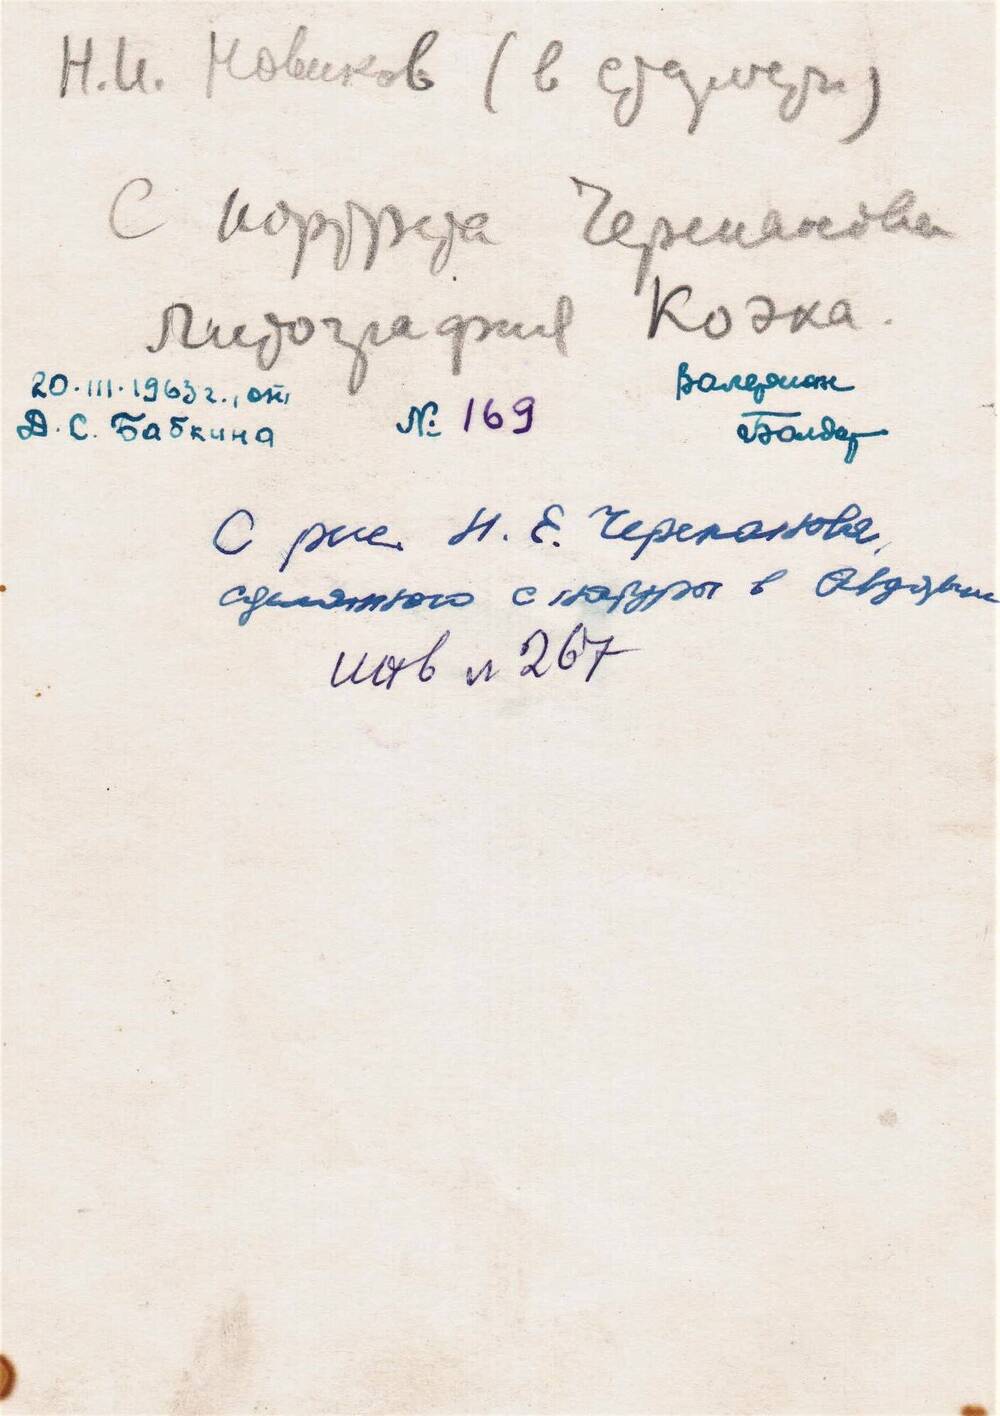 Н.И. Новиков (в старости)
С портрета Черепанова
Литография Коэка.
20.III.1963 г., от
Д.С. Бабкина
№ 169
Валериан
С рис. Н. Е. Черепанова,
сделанного с натуры в
инв № 267